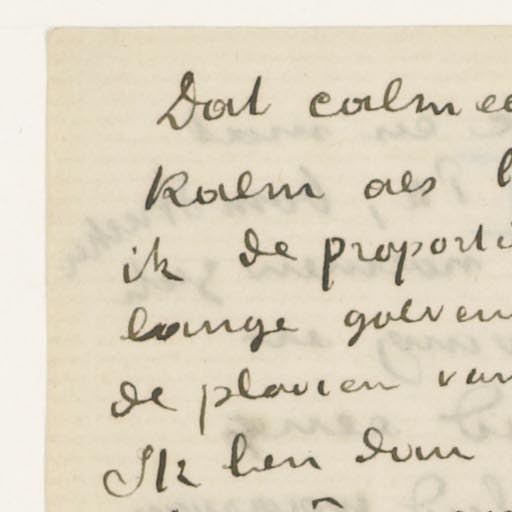 Dat calmee
Kalm als
ik de proporti
lange golven
de plooien van
Ik ben dan